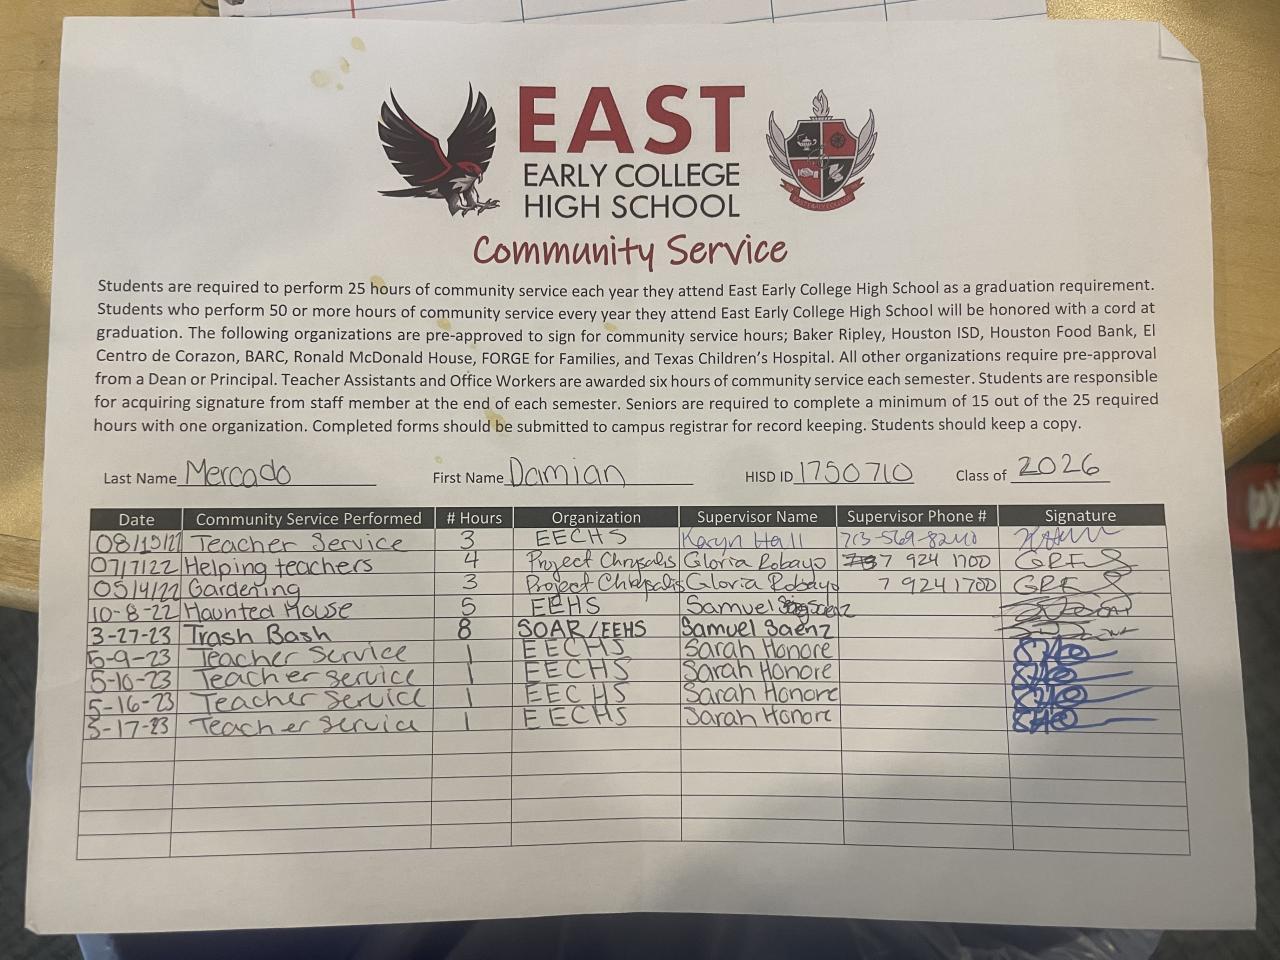 EAST
EARLY COLLEGE
HIGH SCHOOL
Community Service
Students are required to perform 25 hours of community service each year they attend East Early College High School as a graduation requirement.
Students who perform 50 or more hours of community service every year they attend East Early College High School will be honored with a cord at
graduation. The following organizations are pre-approved to sign for community service hours; Baker Ripley, Houston ISD, Houston Food Bank, El
Centro de Corazon, BARC, Ronald McDonald House, FORGE for Families, and Texas Children's Hospital. All other organizations require pre-approval
from a Dean or Principal. Teacher Assistants and Office Workers are awarded six hours of community service each semester. Students are responsible
for acquiring signature from staff member at the end of each semester. Seniors are required to complete a minimum of 15 out of the 25 required
hours with one organization. Completed forms should be submitted to campus registrar for record keeping. Students should keep a copy.
Last Name Mercado First Name Damian HISD ID 1750710 Class of 2026
Date Community Service Performed # Hours Organization Supervisor Name Supervisor Phone # Signature
Teacher Service 3 EECHS Karyn Hall 713-569-8240
07/7/22 Helping teachers 4 Project Chrysalis Gloria Robayo 7 924 1700
05/4/22 Gardening 3 Project Chrysalis Gloria Robayo 7 924 1700
10-8-22 Haunted House 5 EEHS Samuel Saenz
3-27-23 Trash Bash 8 SOAR/EEHS Samuel Saenz
5-9-23 Teacher Service 1 EECHS Sarah Honore
5-10-23 Teacher service 1 EECHS Sarah Honore
5-16-23 Teacher Service 1 EECHS Sarah Honore
5-17-23 Teacher Service 1 EECHS Sarah Honore